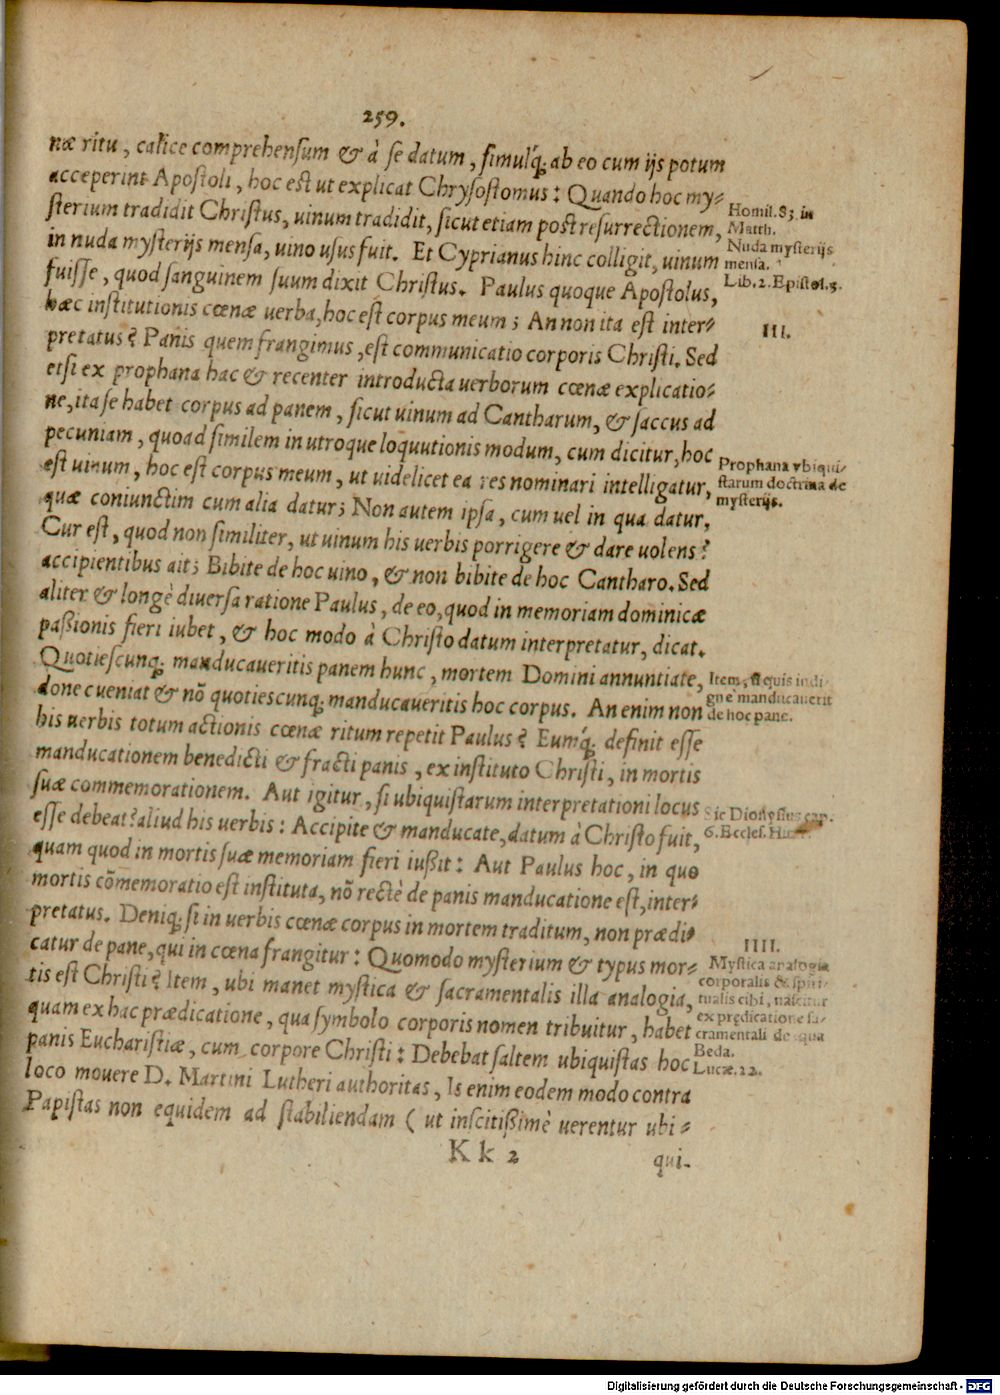 259.
næ ritu, calice comprehensum & à se datum, simulq́; ab eo cum ijs potum
acceperint Apostoli, hoc est ut explicat Chrysostomus: Quando hoc my-
sterium tradidit Christus, uinum tradidit, sicut etiam post resurrectionem,
in nuda mysterijs mensa, uino usus fuit. Et Cyprianus hinc colligit, uinum
fuisse, quod sanguinem suum dixit Christus. Paulus quoque Apostolus,
hæc institutionis cœnæ uerba, hoc est corpus meum; An non ita est inter-
pretatus? Panis quem frangimus, est communicatio corporis Christi. Sed
etsi ex prophana hac & recenter introducta uerborum cœnæ explicatio-
ne, ita se habet corpus ad panem, sicut uinum ad Cantharum, & saccus ad
pecuniam, quoad similem in utroque loquutionis modum, cum dicitur, hoc
est uinum, hoc est corpus meum, ut uidelicet ea res nominari intelligatur,
quæ coniunctim cum alia datur; Non autem ipsa, cum uel in qua datur,
Cur est, quod non similiter, ut uinum his uerbis porrigere & dare uolens?
accipientibus ait; Bibite de hoc uino, & non bibite de hoc Cantharo. Sed
aliter & longè diuersa ratione Paulus, de eo, quod in memoriam dominicæ
paßionis fieri iubet, & hoc modo à Christo datum interpretatur, dicat.
Quotiescunq; manducaueritis panem hunc, mortem Domini annuntiate,
donec ueniat & nō quotiescunq; manducaueritis hoc corpus. An enim non
his uerbis totum actionis cœnæ ritum repetit Paulus? Eumq́; definit esse
manducationem benedicti & fracti panis, ex instituto Christi, in mortis
suæ commemorationem. Aut igitur, si ubiquistarum interpretationi locus
esse debeat? aliud his uerbis: Accipite & manducate, datum à Christo fuit,
quam quod in mortis suæ memoriam fieri iußit: Aut Paulus hoc, in quo
mortis cōmemoratio est instituta, nō rectè de panis manducatione est, inter-
pretatus. Deniq; si in uerbis cœnæ corpus in mortem traditum, non prædi-
catur de pane, qui in cœna frangitur: Quomodo mysterium & typus mor-
tis est Christi? Item, ubi manet mystica & sacramentalis illa analogia,
quam ex hac prædicatione, qua symbolo corporis nomen tribuitur, habet
panis Eucharistiæ, cum corpore Christi: Debebat saltem ubiquistas hoc
loco mouere D. Martini Lutheri authoritas, Is enim eodem modo contra
Papistas non equidem ad stabiliendam (ut inscitißimè uerentur ubi-
K k 2
qui-
Homil. 83. in
Matth.
Nuda mysterijs
mensa.
Lib. 2. Epistol. 3.
III.
Prophana vbiqui-
starum doctrina de
mysterijs.
Item, si quis indi-
gnè manducauerit
de hoc pane.
Sic Dionysius cap.
6. Eccles.
IIII.
Mystica analogia
corporalis & spiri-
tualis cibi, nascitur
ex prędicatione sa-
cramentali de qua
Beda.
Lucæ. 22.
Digitalisierung gefördert durch die Deutsche Forschungsgemeinschaft - DFG